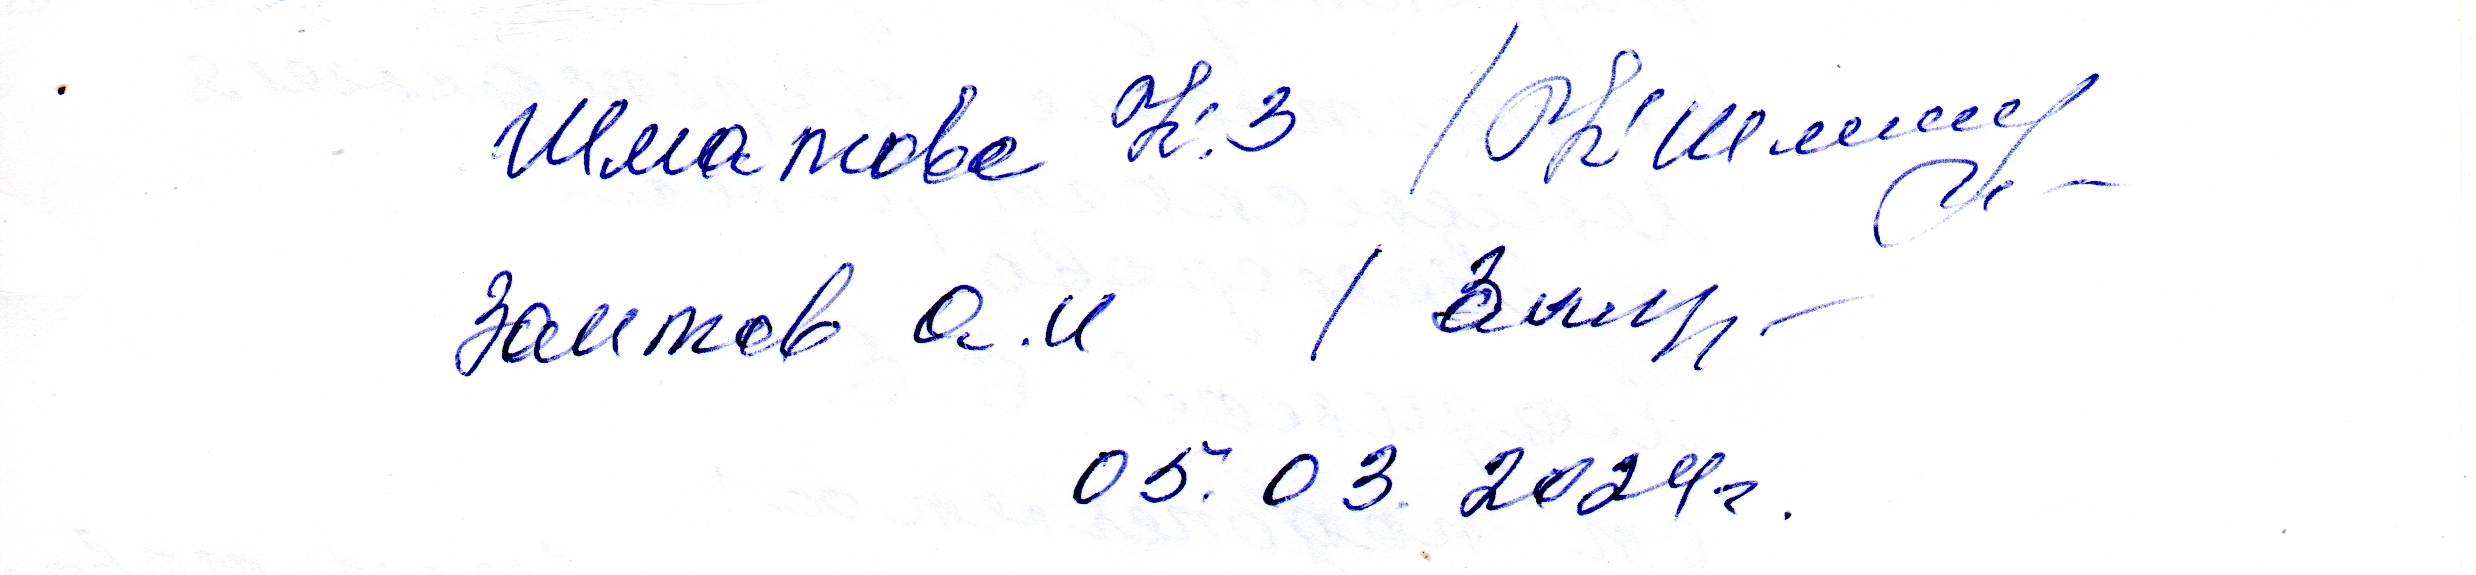 Шматкова Н.З /
Заитов А.И /
05.03.2024г.